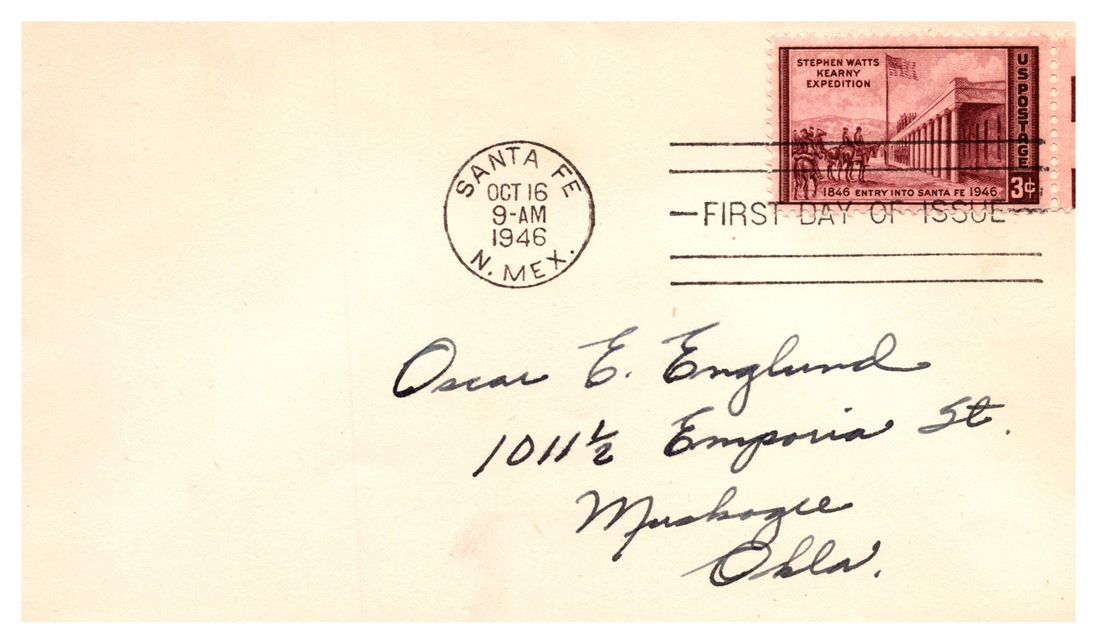 STEPHEN WATTS
KEARNY
EXPEDITION
US POSTAGE
1846 ENTRY INTO SANTA FE 1946
3¢
SANTA FE
OCT 16
9-AM
1946
N. MEX.
FIRST DAY OF ISSUE
Oscar E. Englund
1011½ Emporia St.
Muskogee
Okla.